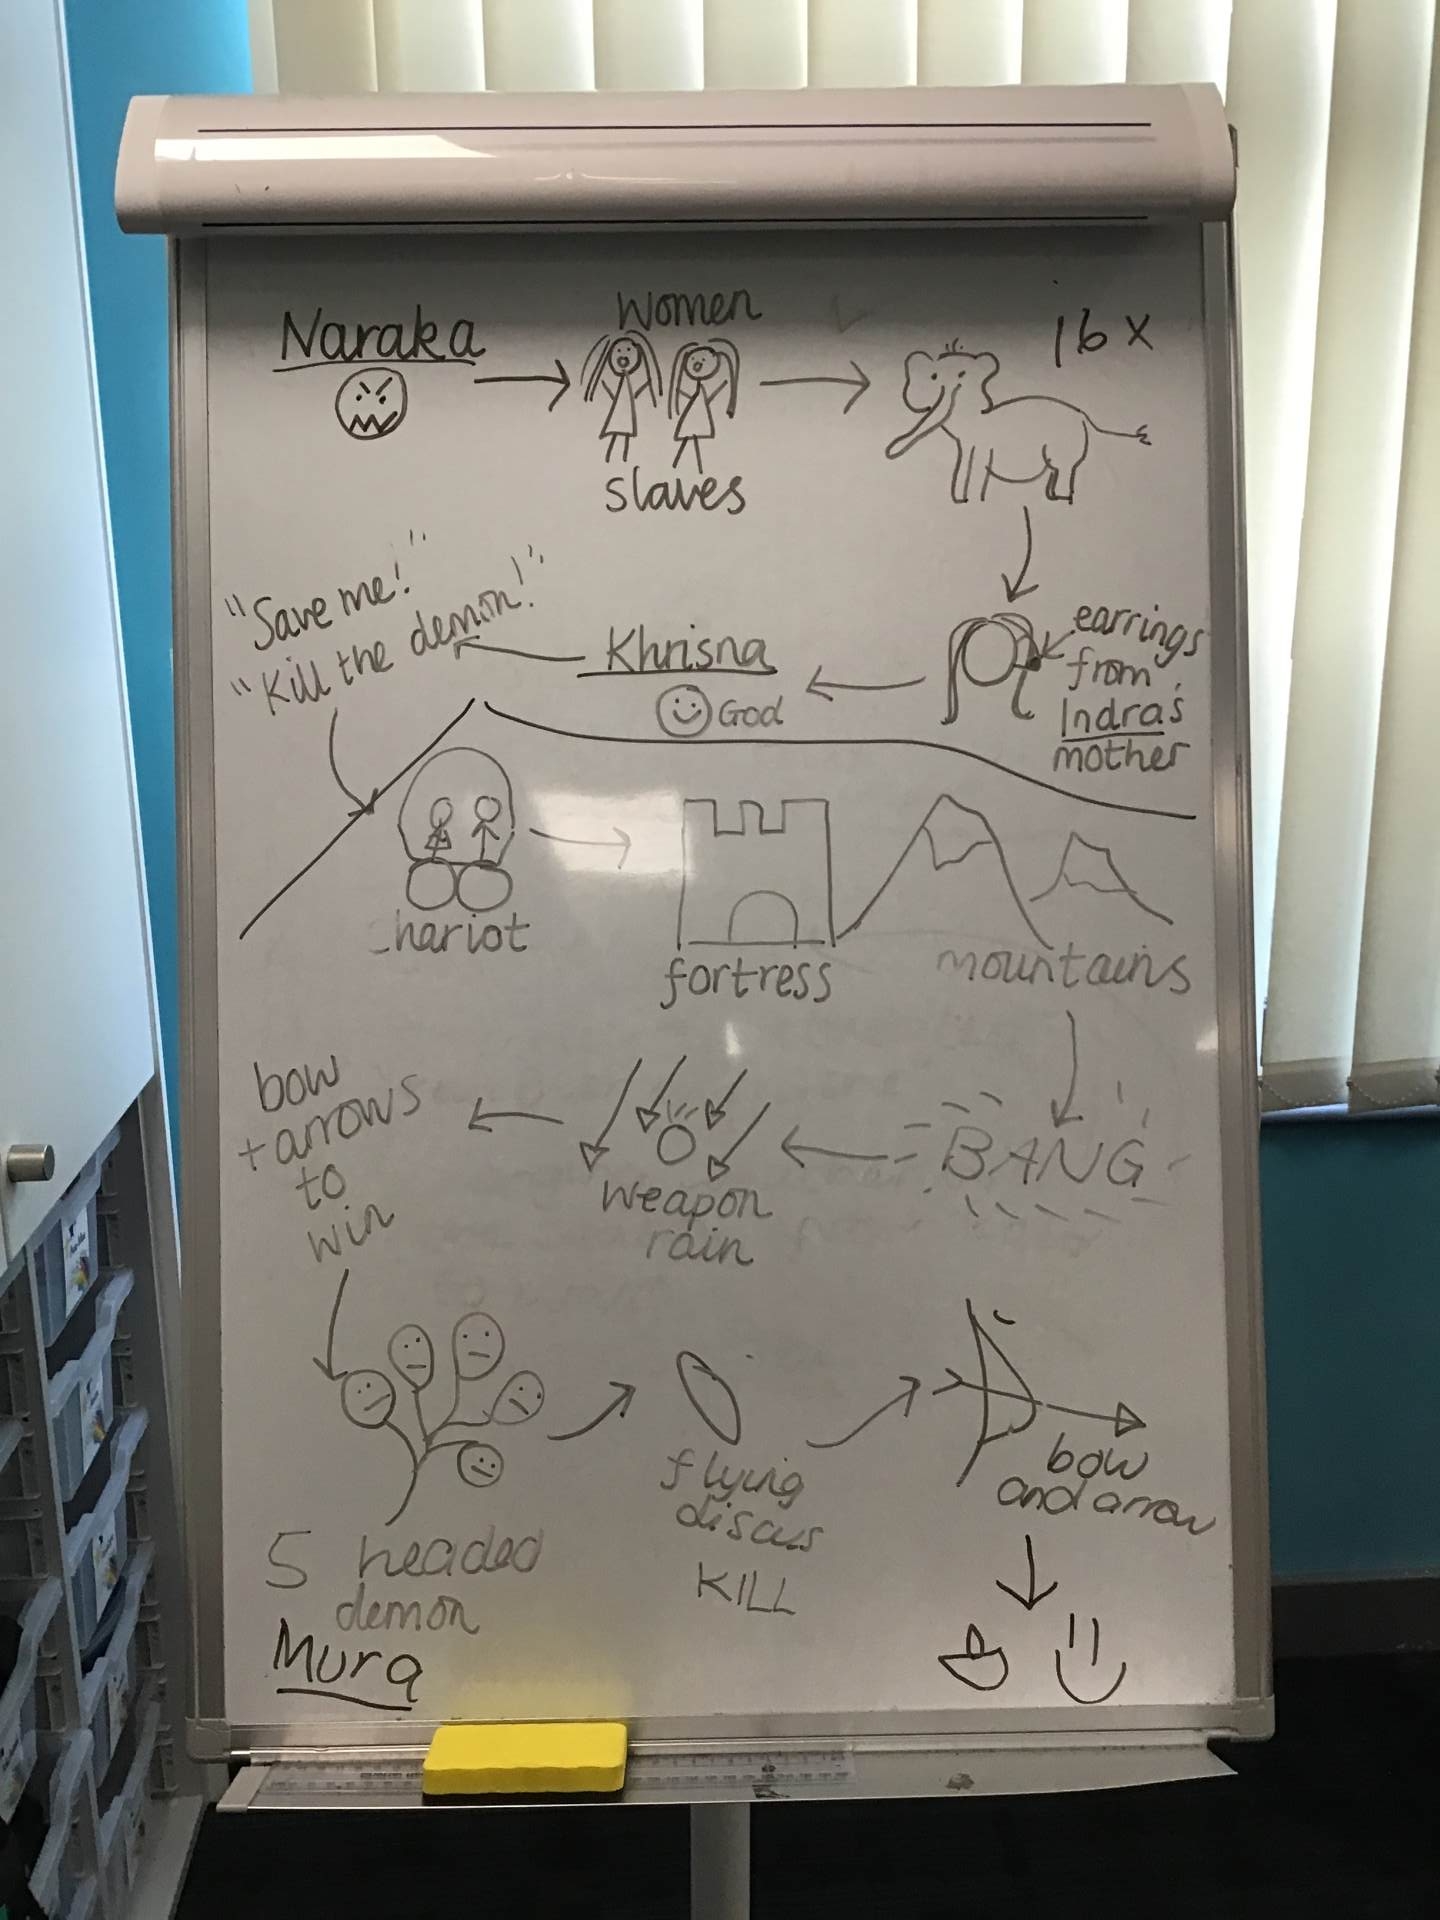 Naraka
women
slaves
16 x
earrings
from
Indra's
mother
Khrisna
God
"Save me!"
"Kill the demon!"
hariot
fortress
mountains
BANG
weapon
rain
bow
+ arrows
to
win
5 headed
demon
Mura
flying
discus
KILL
bow
and arrow